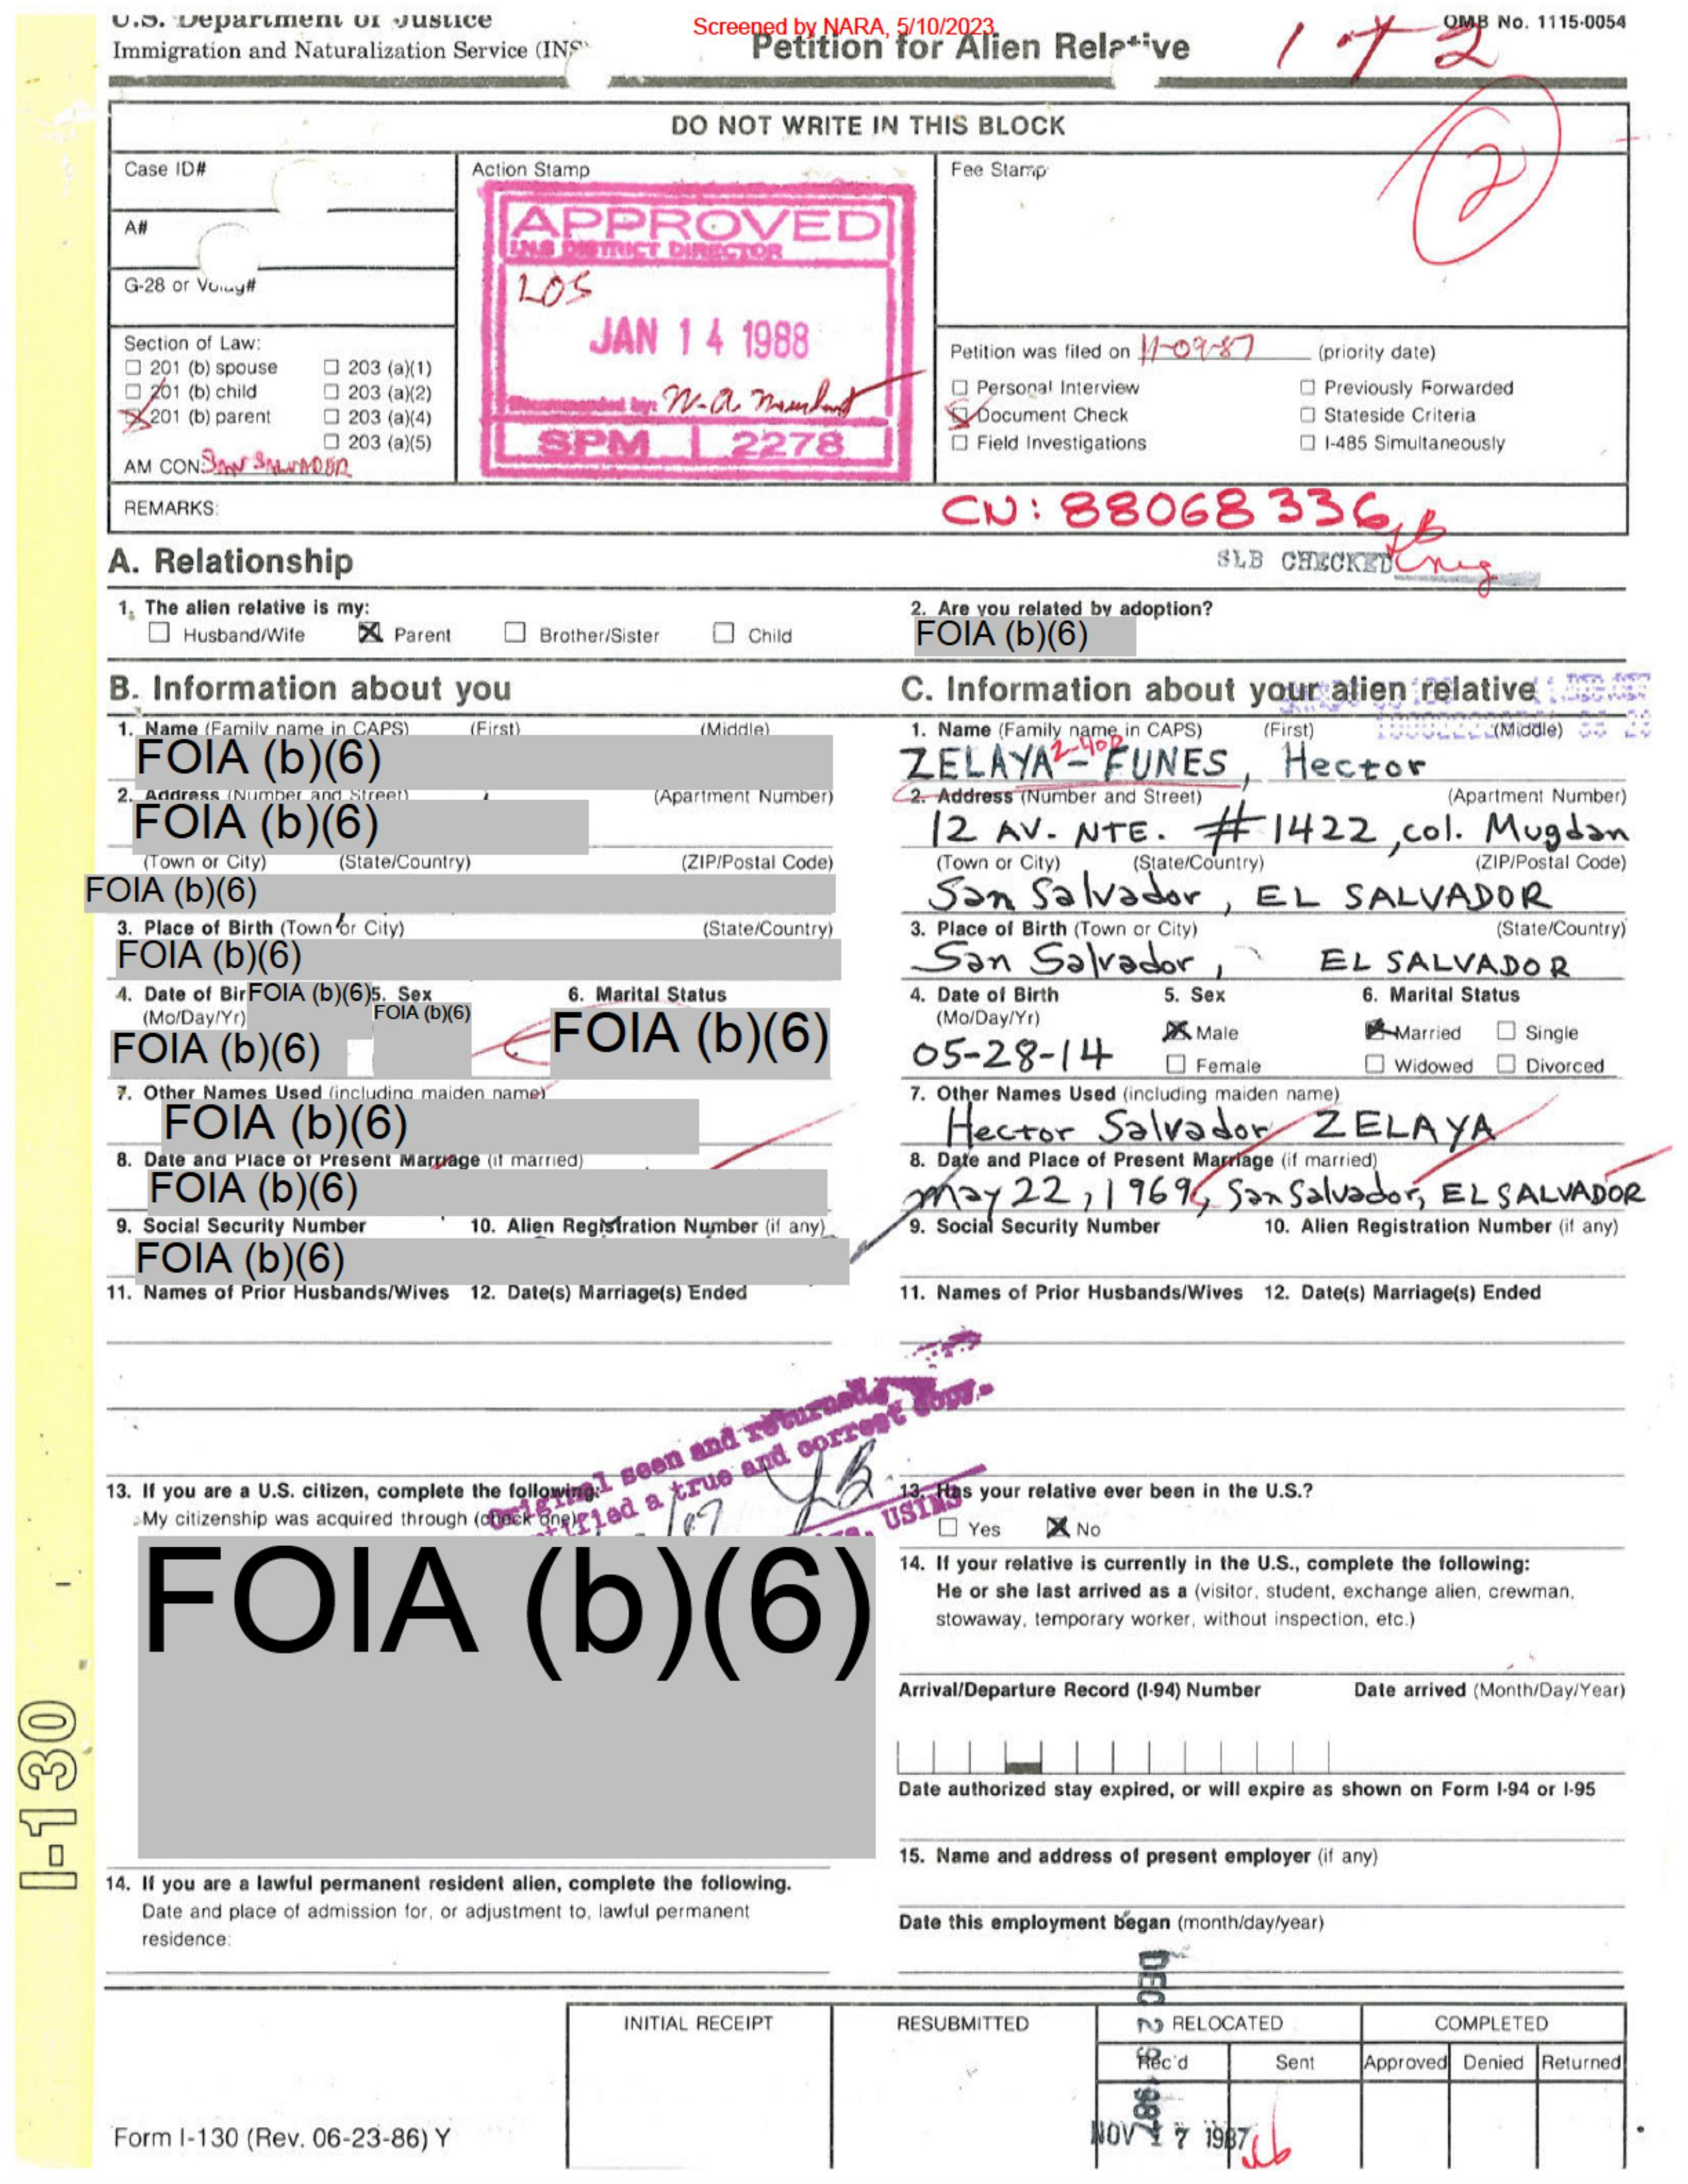 U.S. Department of Justice
Immigration and Naturalization Service (INS)
Screened by NARA, 5/10/2023
Petition for Alien Relative
OMB No. 1115-0054
1 of 2
2
DO NOT WRITE IN THIS BLOCK
Case ID#
A#
G-28 or Volag#
Action Stamp
APPROVED
INS DISTRICT DIRECTOR
LOS
JAN 14 1988
Recommended by:
SPM 2278
Fee Stamp
Section of Law:
☐ 201 (b) spouse ☐ 203 (a)(1)
☐ 201 (b) child ☐ 203 (a)(2)
☒ 201 (b) parent ☐ 203 (a)(4)
☐ 203 (a)(5)
AM CON: SAN SALVADOR
Petition was filed on 11-09-87 (priority date)
☐ Personal Interview ☐ Previously Forwarded
☒ Document Check ☐ Stateside Criteria
☐ Field Investigations ☐ I-485 Simultaneously
REMARKS:
CN: 88068336
SLB CHECKED
A. Relationship
1. The alien relative is my:
☐ Husband/Wife ☒ Parent ☐ Brother/Sister ☐ Child
2. Are you related by adoption?
FOIA (b)(6)
B. Information about you
1. Name (Family name in CAPS) (First) (Middle)
FOIA (b)(6)
2. Address (Number and Street) (Apartment Number)
FOIA (b)(6)
(Town or City) (State/Country) (ZIP/Postal Code)
FOIA (b)(6)
3. Place of Birth (Town or City) (State/Country)
FOIA (b)(6)
4. Date of Bir FOIA (b)(6) 5. Sex 6. Marital Status
(Mo/Day/Yr) FOIA (b)(6)
FOIA (b)(6) FOIA (b)(6)
7. Other Names Used (including maiden name)
FOIA (b)(6)
8. Date and Place of Present Marriage (if married)
FOIA (b)(6)
9. Social Security Number 10. Alien Registration Number (if any)
FOIA (b)(6)
11. Names of Prior Husbands/Wives 12. Date(s) Marriage(s) Ended
Original seen and returned
true and correct copy.
USINS
13. If you are a U.S. citizen, complete the following:
My citizenship was acquired through (check one)
FOIA (b)(6)
14. If you are a lawful permanent resident alien, complete the following.
Date and place of admission for, or adjustment to, lawful permanent
residence:
C. Information about your alien relative
1. Name (Family name in CAPS) (First) (Middle)
ZELAYA-FUNES, Hector
2. Address (Number and Street) (Apartment Number)
12 AV. NTE. #1422, col. Mugdan
(Town or City) (State/Country) (ZIP/Postal Code)
San Salvador, EL SALVADOR
3. Place of Birth (Town or City) (State/Country)
San Salvador, EL SALVADOR
4. Date of Birth 5. Sex 6. Marital Status
(Mo/Day/Yr) ☒ Male ☒ Married ☐ Single
05-28-14 ☐ Female ☐ Widowed ☐ Divorced
7. Other Names Used (including maiden name)
Hector Salvador ZELAYA
8. Date and Place of Present Marriage (if married)
may 22, 1969, San Salvador, EL SALVADOR
9. Social Security Number 10. Alien Registration Number (if any)
11. Names of Prior Husbands/Wives 12. Date(s) Marriage(s) Ended
13. Has your relative ever been in the U.S.?
☐ Yes ☒ No
14. If your relative is currently in the U.S., complete the following:
He or she last arrived as a (visitor, student, exchange alien, crewman,
stowaway, temporary worker, without inspection, etc.)
Arrival/Departure Record (I-94) Number Date arrived (Month/Day/Year)
Date authorized stay expired, or will expire as shown on Form I-94 or I-95
15. Name and address of present employer (if any)
Date this employment began (month/day/year)
I-130
INITIAL RECEIPT RESUBMITTED RELOCATED COMPLETED
Rec'd Sent Approved Denied Returned
NOV 17 1987
Form I-130 (Rev. 06-23-86) Y